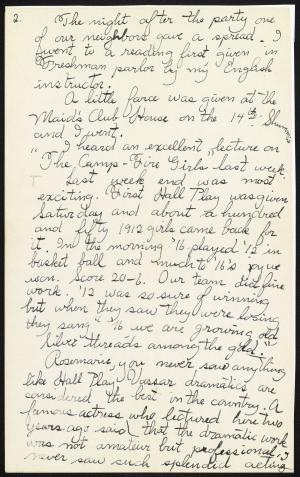 2.
The night after the party one
of our neighbors gave a spread. I
went to a reading first given in
Freshman parlor by my English
instructor.
A little farce was given at the
Maids Club House on the 17th
and I went.
I heard an excellent lecture on
"The Camp-Fire Girls" last week.
Last week end was most
exciting. First Hall Play was given
Saturday and about a hundred
and fifty 1912 girls came back for
it. In the morning '16 played '12 in
basket ball and much to '16's joy we
won. Score 20-6. Our team did fine
work. '12 was so sure of winning
but when they saw they were losing
they sang "'16 we are growing old"
Silver threads among the gold."
Rosemarie, you never saw anything
like Hall Play. Vassar dramatics are
considered the best in the country. A
famous actress who lectured here two
years ago said that the dramatic work
was not amateur but professional. I
never saw such splendid acting